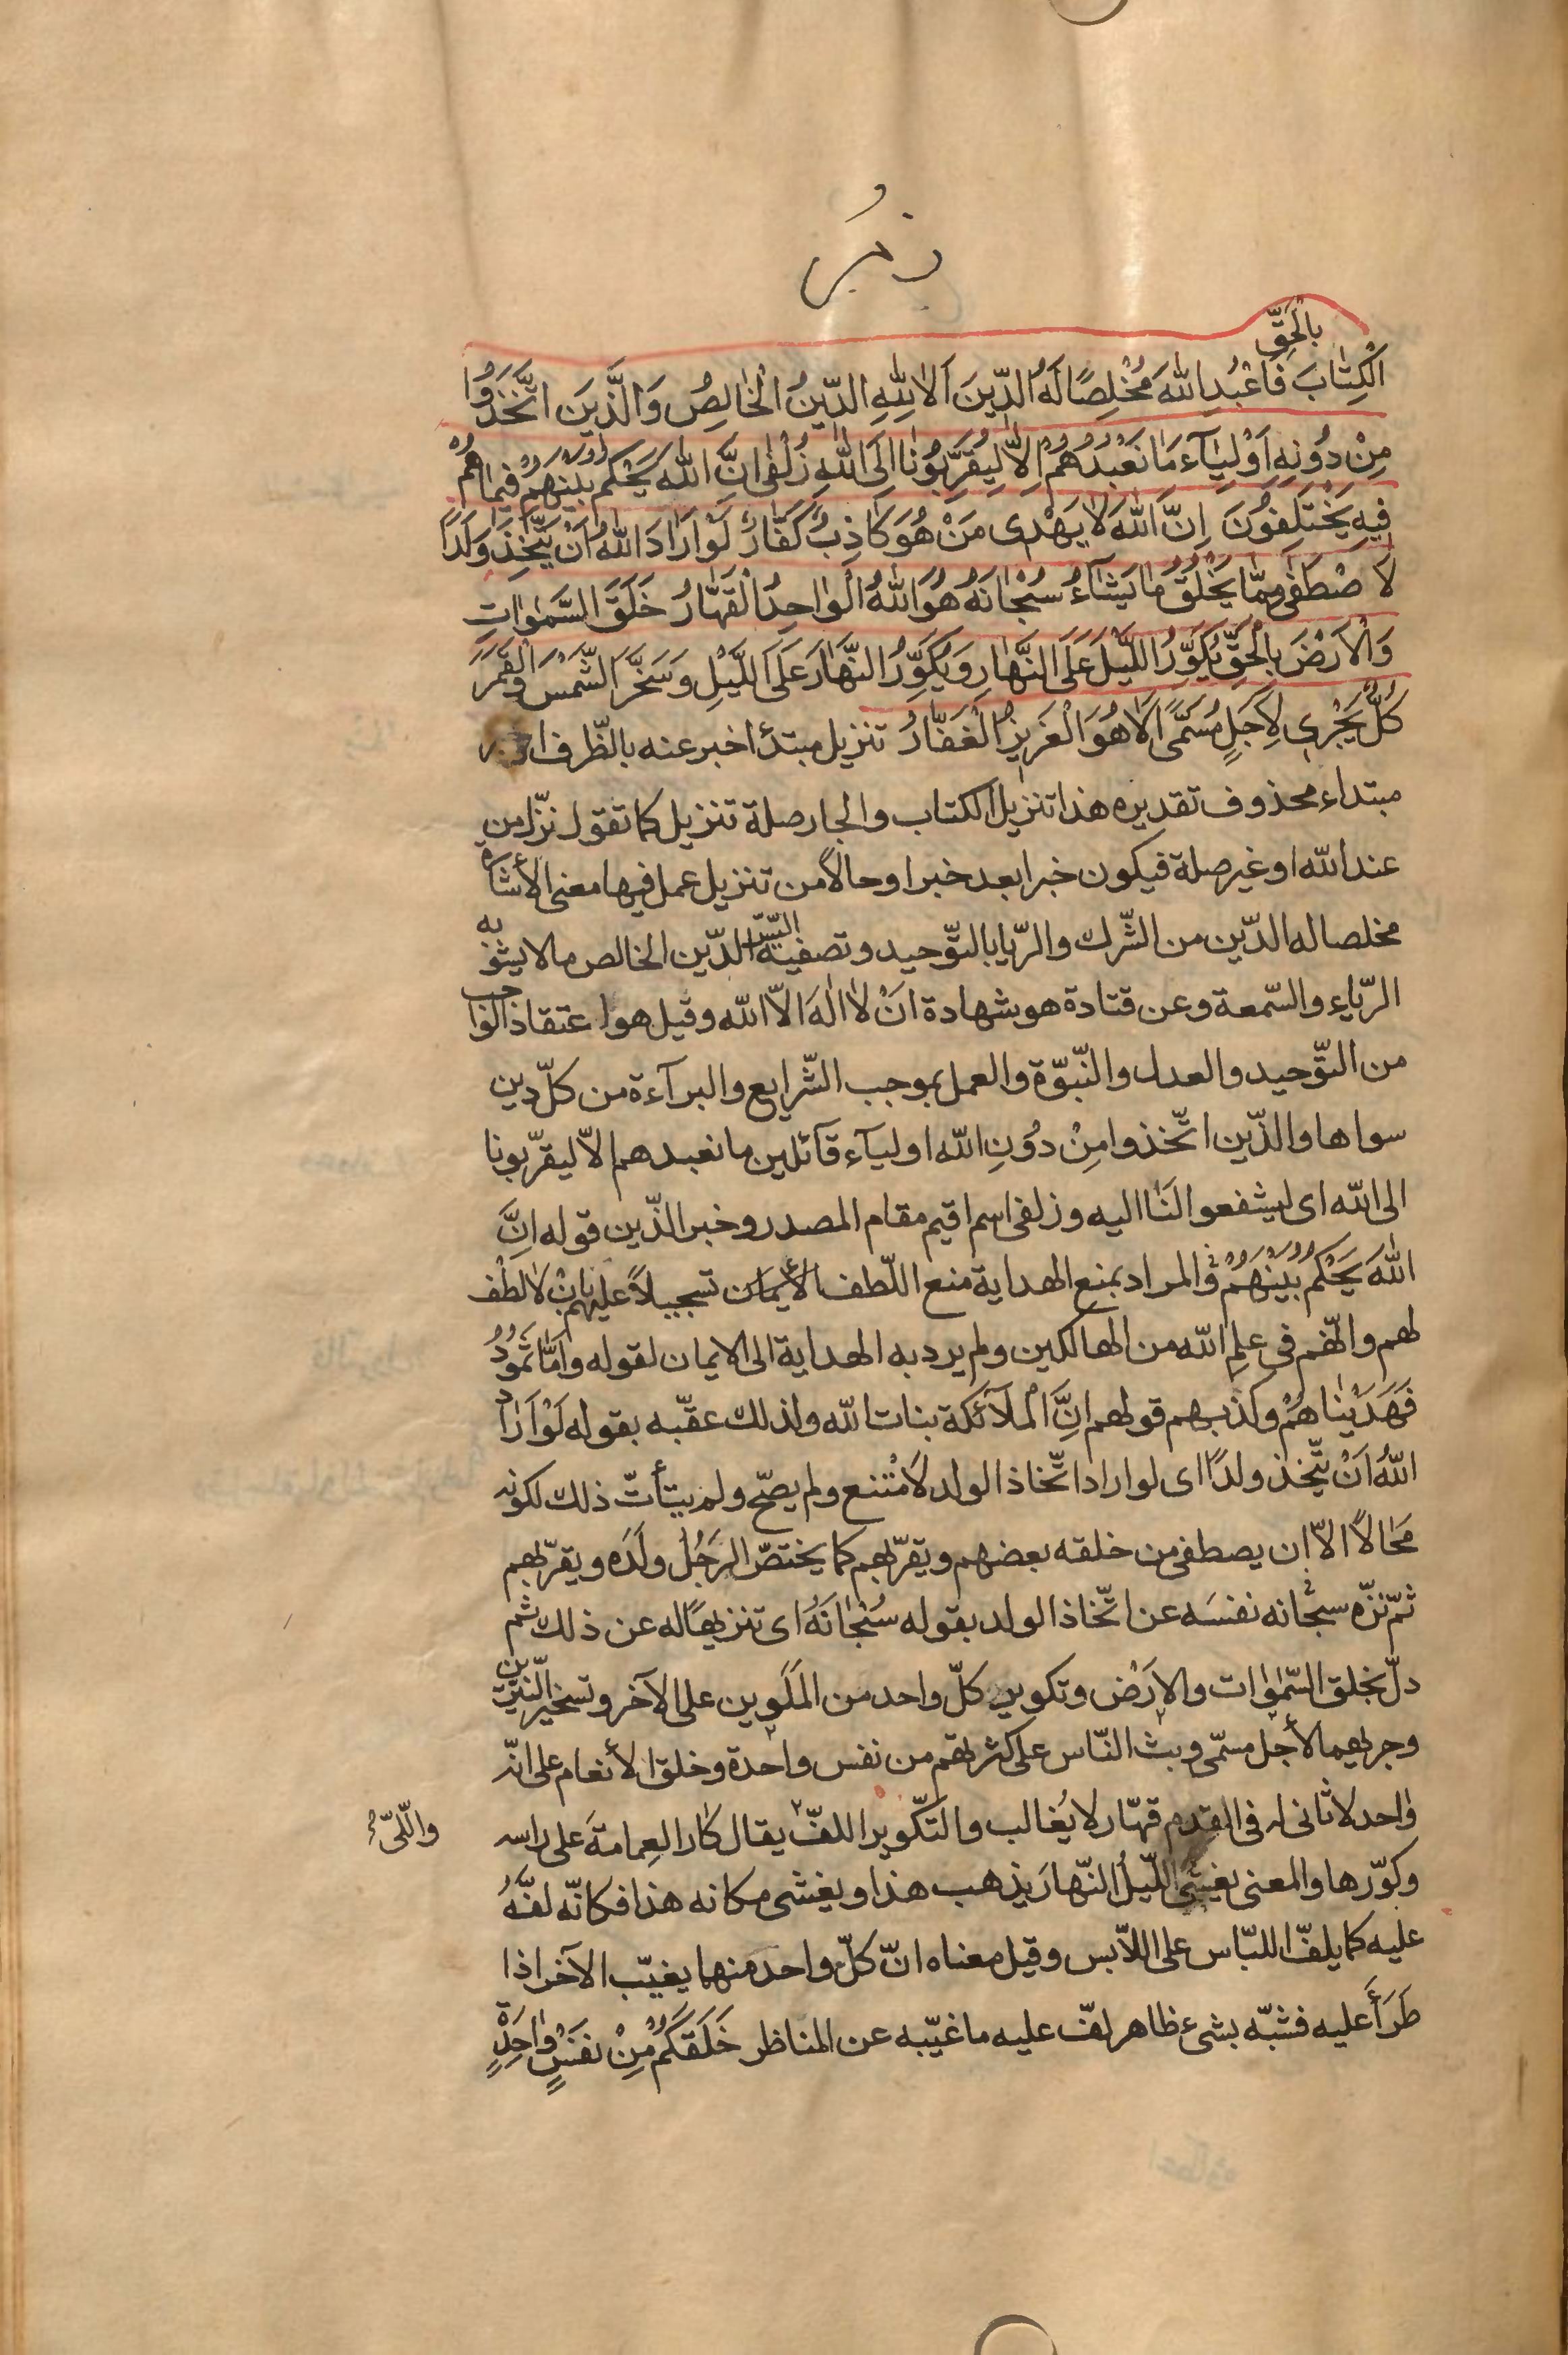 زمر
بِالْحَقِّ
الْكِتٰابَ فَاعْبُدِ اللّٰهَ مُخْلِصًا لَهُ الدّينَ اَلٰا لِلّٰهِ الدّينُ الْخٰالِصُ وَالَّذينَ اتَّخَذُوا
مِنْ دُونِهِ اَوْلِيٰآءَ مٰا نَعْبُدُهُمْ اِلّٰا لِيُقَرِّبُونٰا اِلَى اللّٰهِ زُلْفٰى اِنَّ اللّٰهَ يَحْكُمُ بَيْنَهُمْ فيمٰا هُمْ
فيهِ يَخْتَلِفُونَ اِنَّ اللّٰهَ لٰا يَهْدى مَنْ هُوَ كٰاذِبٌ كَفّٰارٌ لَوْ اَرٰادَ اللّٰهُ اَنْ يَتَّخِذَ وَلَدًا
لَا صْطَفٰى مِمّٰا يَخْلُقُ مٰا يَشٰآءُ سُبْحٰانَهُ هُوَ اللّٰهُ الْوٰاحِدُ الْقَهّٰارُ خَلَقَ السَّمٰوٰاتِ
وَالْاَرْضَ بِالْحَقِّ يُكَوِّرُ اللَّيْلَ عَلَى النَّهٰارِ وَيُكَوِّرُ النَّهٰارَ عَلَى اللَّيْلِ وَسَخَّرَ الشَّمْسَ وَالْقَمَرَ
كُلٌّ يَجْرى لِاَجَلٍ مُسَمًّى اَلٰا هُوَ الْعَزيزُ الْغَفّٰارُ تنزيل مبتدأ اخبر عنه بالظّرف او خبر
مبتداء محذوف تقديره هذا تنزيل الكتاب والجار صلة تنزيل كما تقول نزّل من
عند اللّه او غير صلة فيكون خبرا بعد خبر او حالاً من تنزيل عمل فيها معنى الأشاره
مخلصا له الدّين من الشّرك والرّيا بالتّوحيد وتصفية السّرّ الدّين الخالص ما لا يشوبه
الرّياء والسّمعة وعن قتادة هو شهادة انْ لا الٰهَ الاّ اللّه وقيل هو اعتقاد الواجب
من التّوحيد والعدل والنّبوّة والعمل بموجب الشّرايع والبرآءة من كلّ دين
سواها والذّين اتّخذوا مِنْ دُوْنِ اللّه اولياء قآئلين ما نعبدهم الاّ ليقرّبونا
الى اللّه اى ليشفعوا لَنٰا اليه وزلفى اسم اقيم مقام المصدر وخبر الذّين قوله اِنَّ
اللّٰهَ يَحْكُمُ بَيْنَهُمْ والمراد بمنع الهداية منع اللّطف الأيمان تسجيلاً عليهم بانْ لا لطْف
لهم وانّهم فى علم اللّه من الهالكين ولم يرد به الهداية الى الايمان لقوله واَمّٰا ثَمُوْدُ
فَهَدَيْنٰاهُمْ وكذبهم قولهم اِنَّ الْملآئكة بنات اللّه ولذلك عقّبه بقوله لَوْ اَرٰادَ
اللّٰهُ اَنْ يتّخذ ولدًا اى لو اراد اتّخاذ الولد لَامْتنع ولم يصحّ ولم يتأتّ ذلك لكونه
مَحٰالاً الاّ ان يصطفى من خلقه بعضهم ويقرّبهم كما يختصّ الرجُلُ ولَدَه ويقرّبهم
ثمّ نزّه سبحٰانه نفسَه عن اتّخاذ الولد بقوله سُبْحٰانَهُ اى تنزيهًا له عن ذلك ثم
دلّ بخلق السّمٰوات والارَضْ وتكوير كلّ واحد من المَلَوين على الآخر وتسخير النّيّرين
وجريهما لأجل مسمّى وبث النّاس على كثرتهم من نفس واحدة وخلق الأنعام على انّه
وٰاحد لا ثانى له فى القدم قهّار لا يُغالب والتكّوير اللفّ يقال كٰار العِمامةَ على راسه
واللّىّ
وكوّرها والمعنى يغشى اللّيلُ النّهارَ يذهب هذا ويغشى مكانه هذا فكانّه لفَّهُ
عليه كما يلفّ اللبّاس على اللاّبس وقيل معناه انّ كلّ واحد منهما يغيّب الآخر اذا
طَرَأَ عليه فشبّه بشىء ظاهر لفّ عليه ما غيّبه عن المناظر خَلَقَكُمْ مِنْ نفَسٍْ وٰاحِدَةٍ